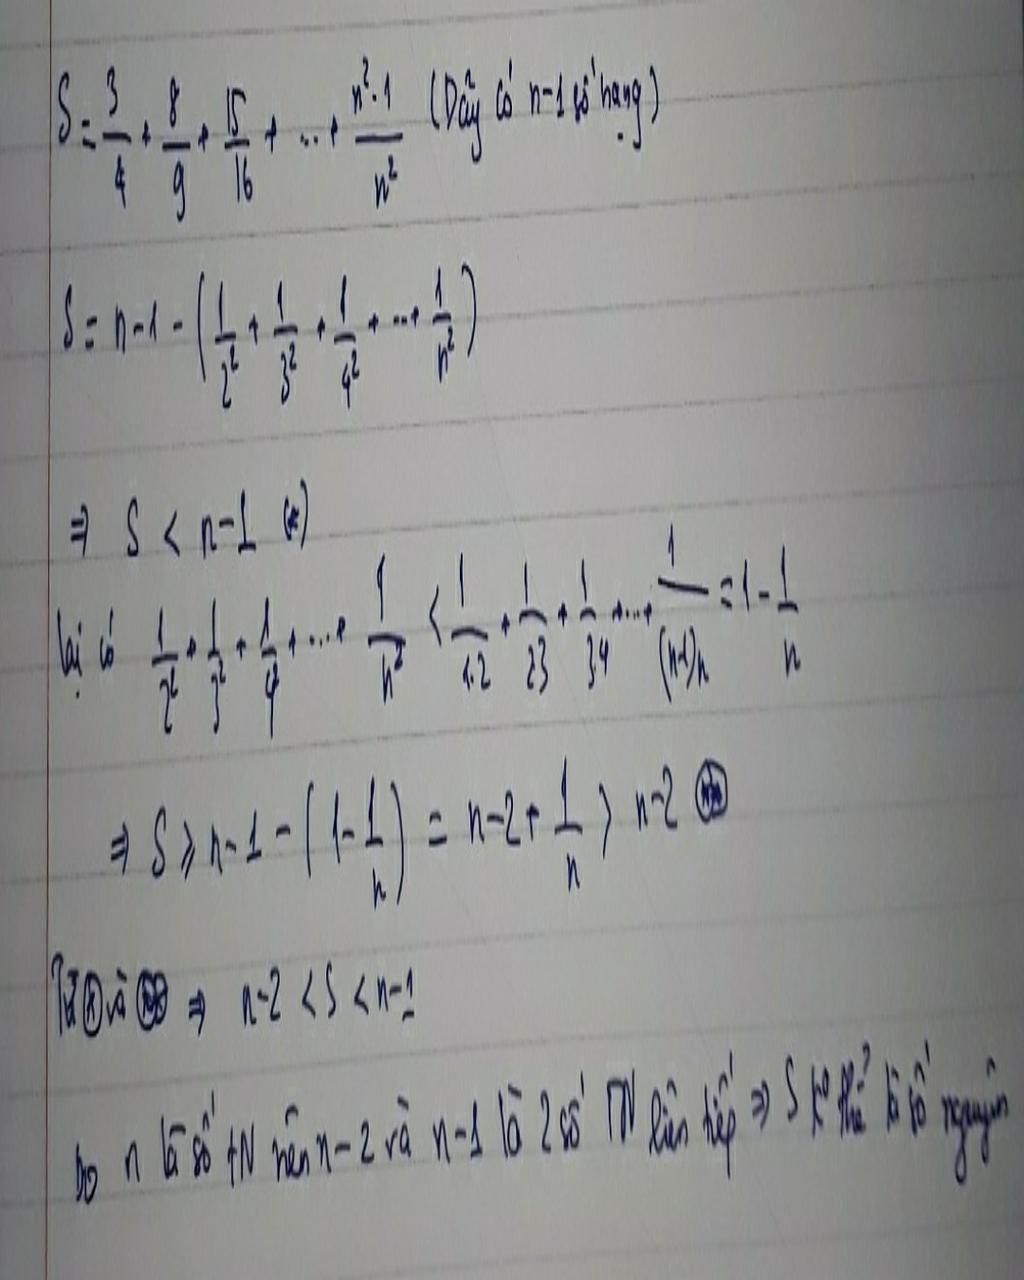 S = 3/4 + 8/9 + 15/16 + ... + n²-1/n² (Dãy có n-1 số hạng)
S = n-1 - (1/2² + 1/3² + 1/4² + ... + 1/n²)
⇒ S < n-1 (*)
lại có 1/2² + 1/3² + 1/4² + ... + 1/n² < 1/1.2 + 1/23 + 1/34 + ... + 1/(n-1)n = 1 - 1/n
⇒ S ⩾ n-1 - (1 - 1/n) = n-2 + 1/n > n-2 (**)
Từ (*) và (**) ⇒ n-2 < S < n-1
Do n là số tN nên n-2 và n-1 là 2 số TN liên tiếp ⇒ S k° thể là số nguyên